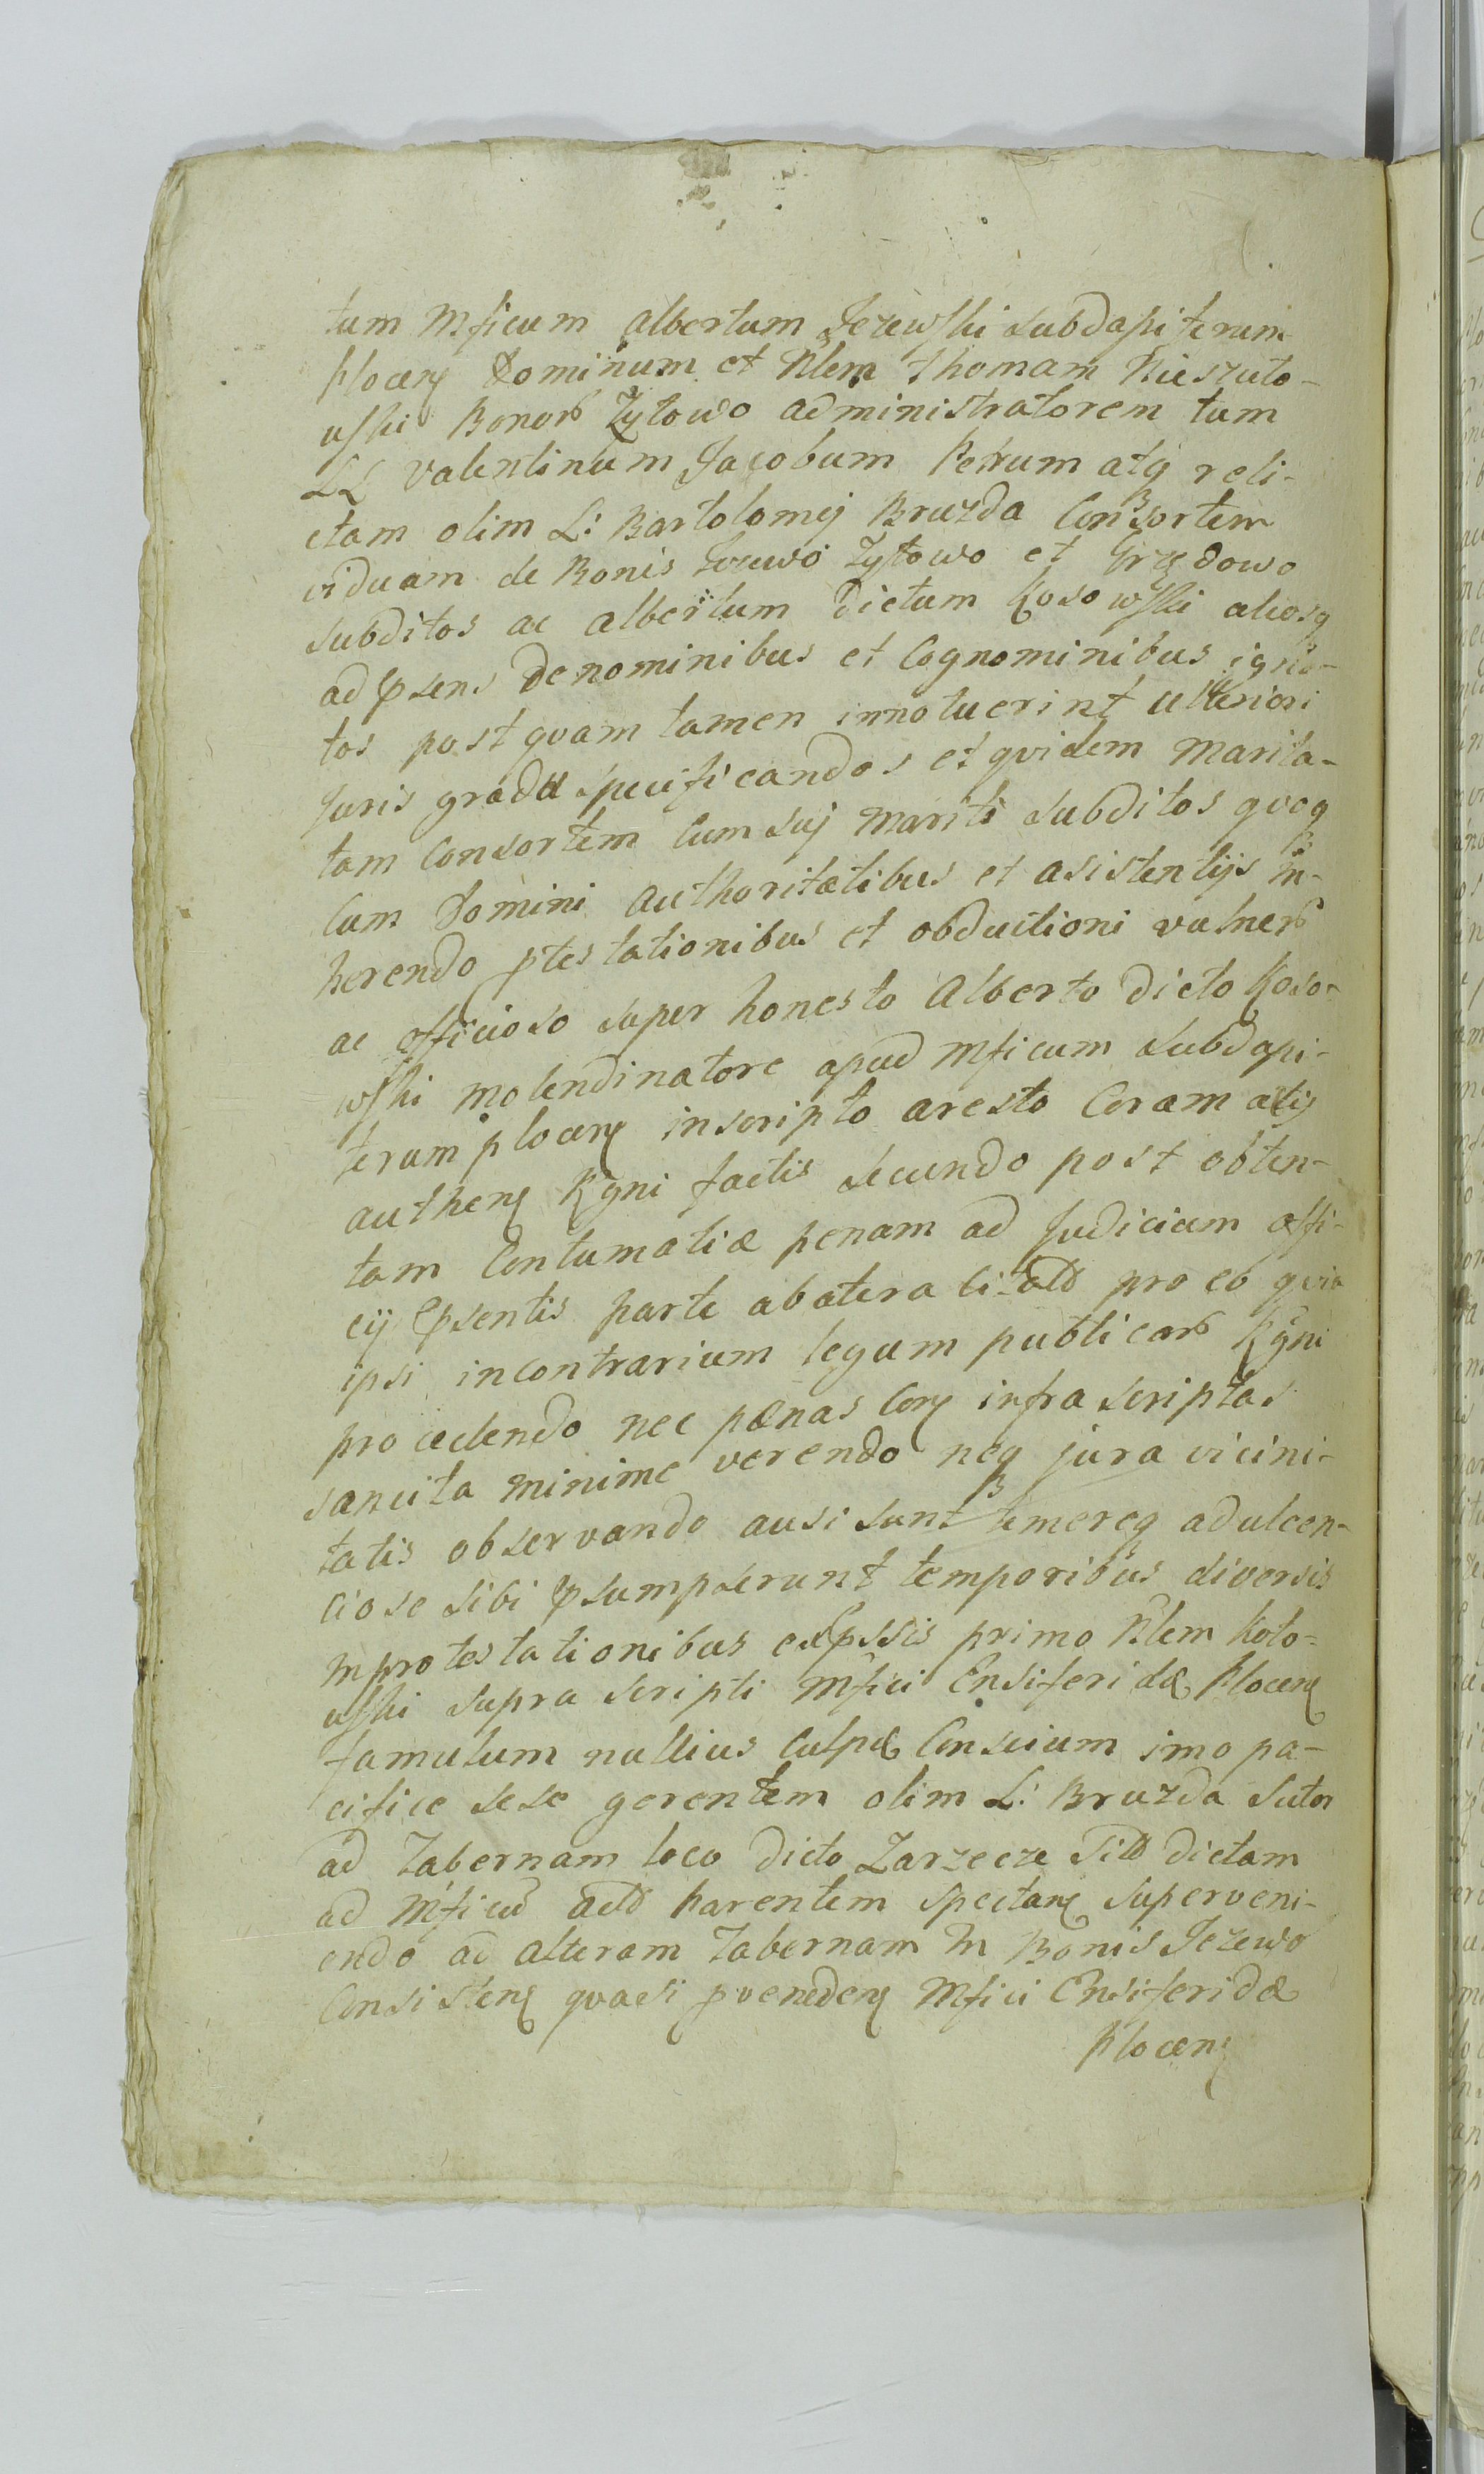 tum Mficum Albertum Jezewski Subdapiferum
Plocen Dominum et Nlem Thomam Nieszuto-
wski Bonor Zytowo administratorem tum
LL Valentinum Jacobum Petrum atq reli-
ctam olim L: Bartolomej Bruzda Consortem
viduam de Bonis Jezewo Zytowo et Grzędowo
subditos ac Albertum dictum Kosowski aliosq
ad psens de nominibus et Cognominibus igno-
tos post quam tamen innotuerint ulteriori
Juris gradu specificandos et quidem Marita-
tam Consortem Cum suj Mariti Subditos quoq
Cum Domini Authoritatibus et asistentijs in-
herendo ptestationibus et obductioni vulner
ac officioso super honesto Alberto dicto Koso-
wski molendinatore apud Mficum Subdapi-
ferum plocen inscripto aresto Coram actis
authen Rgni factis secundo post obten-
tam Contumatiæ penam ad Judicium offi-
cij psentis parte ab altera citat pro eo quia
ipsi incontrarium legum publicar Rgni
procedendo nec pænas Con infra scriptas
sancita minime verendo neq jura vicini-
tatis observando ausi sunt temereq adulcen-
ciose sibi psumpserunt temporibus diversis
in protestationibus expssis primo Nlem Koto-
wski supra scripti Mfici Ensiferidæ Plocen
famulum nullius Culpæ Conscium imo pa-
cifice sese gerentem olim L: Bruzda Sutor
ad Tabernam loco dicto Zarzecze sit dictam
ad Mficu act Parentem spectan superveni-
endo ad alteram Tabernam in Bonis Jezewo
Consisten quasi pvenden Mfici Ensiferidæ
Plocen